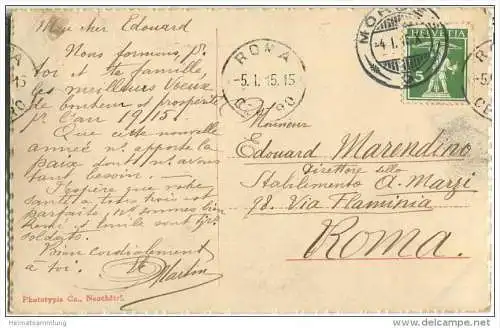 Mon cher Edouard
Nous formons, pr.
toi et ta famille,
les meilleurs voeux
de bonheur et prospérité
pr l'an 1915.
Que cette nouvelle
année ns. apporte la
paix dont ns. avons
tant besoin. —
J'espère que votre
santé à tous trois est
parfaite. Ns. sommes bien
René et Emile sont tjrs.
soldats.
Bien cordialement
à toi.
Martin
Phototypie Co., Neuchâtel.
ROMA
-5.1.15.15
CENTRO
MORGES
-4.I.15
HELVETIA
5
Monsieur
Edouard Marendino
Direttore dello
Stabilimento A. Marzi
98. Via Flaminia
Roma.
Heimatsammlung